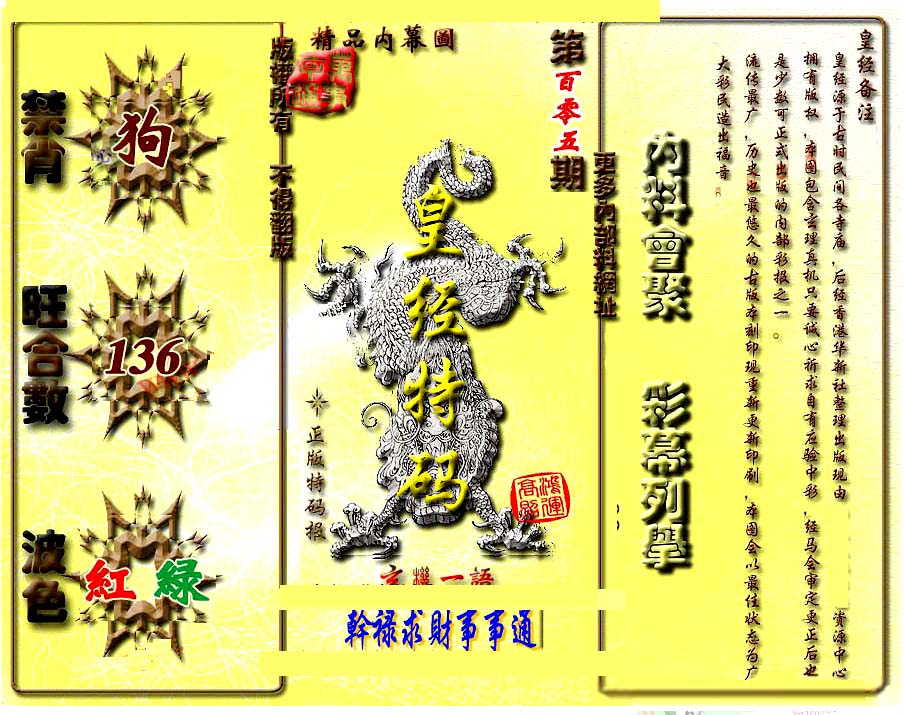 精品内幕圖
第百零五期
版權所有 不得翻版
禁肖
狗
旺合數
136
波色
紅 緑
皇经特码
正版特码报
鴻運高照
玄機一語
幹禄求財事事通
更多内部料網址
内料會聚 彩幕列擧
皇经备注
皇经源于古时民间各寺庙，后经香港华新社整理出版现由 资源中心
拥有版权，本图包含玄理真机只要诚心祈求自有应验中彩，经马会审定更正后也
是少数可正式出版的内部彩报之一。
流传最广，历史也最悠久的古版本刻印现重新更新印刷，本图会以最佳状态为广
大彩民造出福音